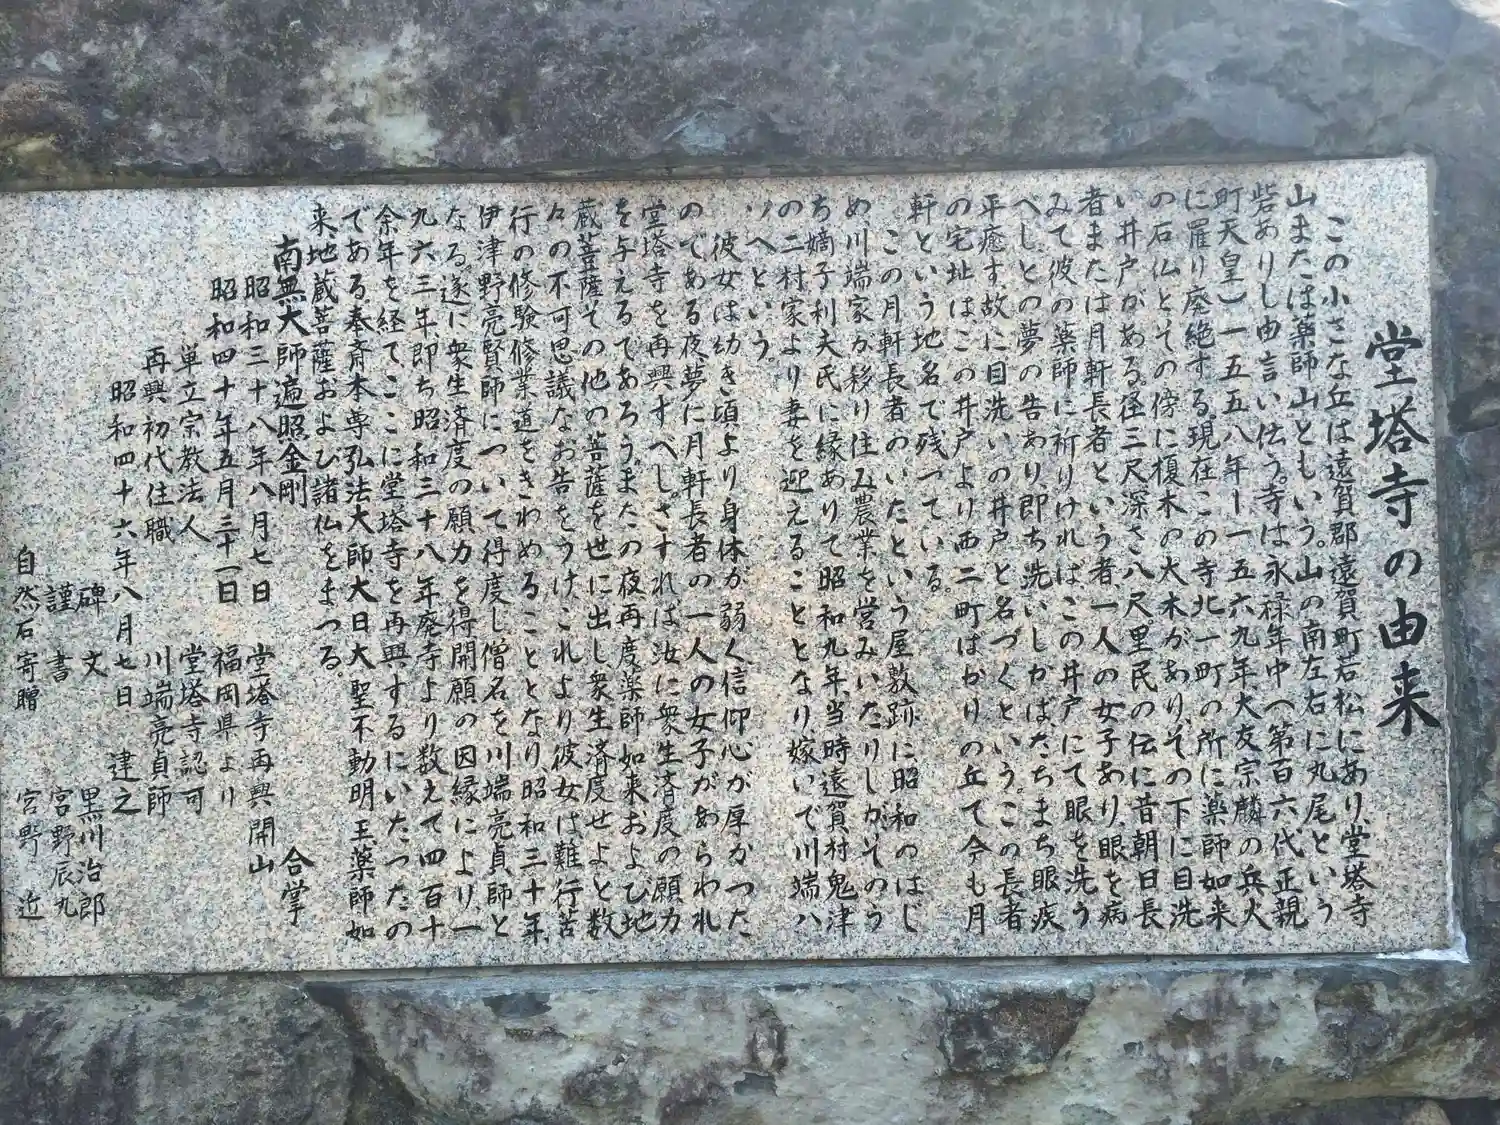 堂塔寺の由来
この小さな丘は遠賀郡遠賀町若松にあり、堂塔寺
山または薬師山ともいう。山の南左右に丸尾という
砦ありし由言い伝う。寺は永禄年中(第百六代正親
町天皇)一五五八年ー一五六九年大友宗麟の兵火
に罹り廃絶する。現在この寺北一町の所に薬師如来
の石仏とその傍に榎木の大木があり、その下に目洗
い井戸がある。径三尺深さ八尺、里民の伝に昔朝日長
者または月軒長者という者、一人の女子あり、眼を病
みて彼の薬師に祈りければこの井戸にて眼を洗う
べしとの夢の告あり、即ち洗いしかば、たちまち眼疾
平癒す、故に目洗いの井戸と名づくという。この長者
の宅址は、この井戸より西二町ばかりの丘て今も月
軒という地名で残っている。
この月軒長者のいたという屋敷跡に昭和のはじ
め川端家が移り住み農業を営みいたりしが、そのう
ち嫡子利夫氏に縁ありて昭和九年、当時遠賀村鬼津
の二村家より妻を迎えることとなり嫁いで川端ハ
ツヘという。
彼女は幼き頃より身体が弱く信仰心が厚かった
のである夜、夢に月軒長者の一人の女子があらわれ
堂塔寺を再興すべし。さすれば汝に衆生済度の願力
を与えるであろう。またの夜再度薬師如来および地
蔵菩薩その他の菩薩を世に出し衆生済度せよと数
々の不可思議なお告をうけこれより彼女は難行苦
行の修験修業道をきわめることとなり昭和三十年、
伊津野亮賢師について得度し僧名を川端亮貞師と
なる。遂に衆生済度の願力を得開願の因縁により、一
九六三年即ち昭和三十八年廃寺より数えて四百十
余年を経てここに堂塔寺を再興するにいたったの
である。奉斎本尊弘法大師大日大聖不動明王薬師如
来地蔵菩薩および諸仏をまつる。
南無大師遍照金剛 合掌
昭和三十八年八月七日 堂塔寺再興開山
昭和四十年五月三十一日 福岡県より
単立宗教法人 堂塔寺認可
再興初代住職 川端亮貞師
昭和四十六年八月七日 建之
碑文 黒川治郎
謹書 宮野辰丸
自然石寄贈 宮野 近